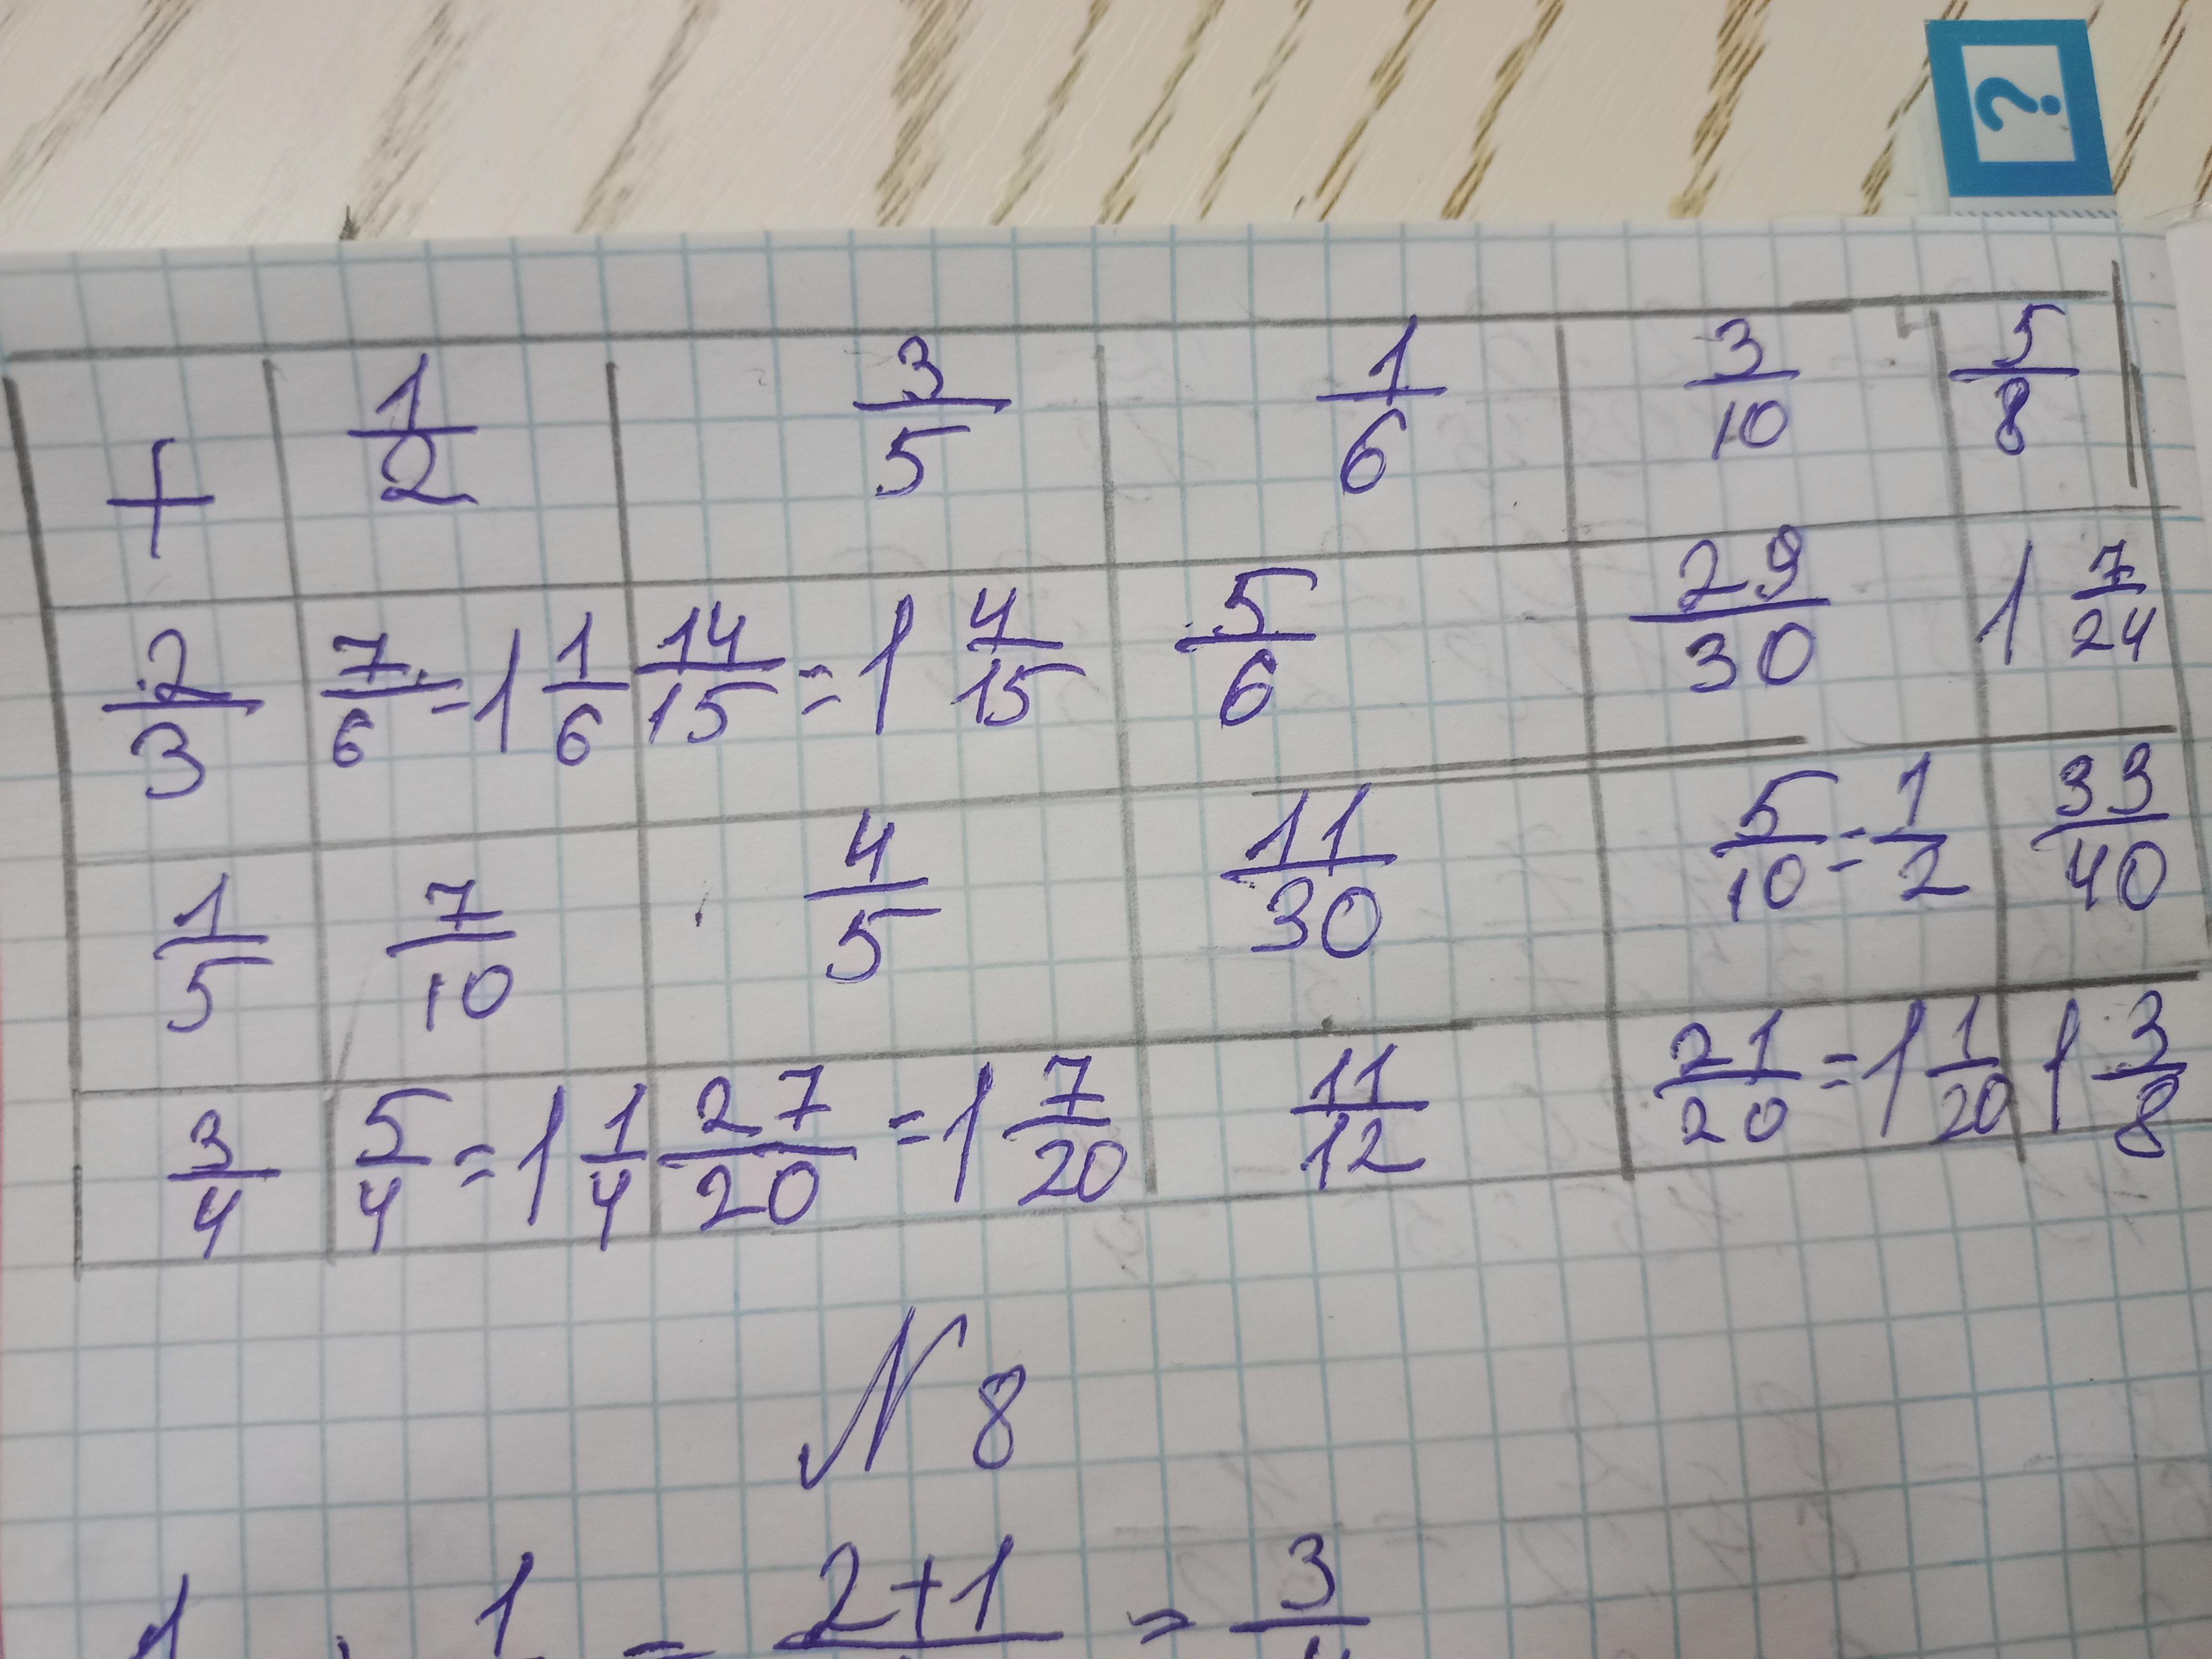 ?
+ 1/2 3/5 1/6 3/10 5/8
2/3 7/6=1 1/6 14/15=1 4/15 5/6 29/30 1 7/24
1/5 7/10 4/5 11/30 5/10=1/2 33/40
3/4 5/4=1 1/4 27/20=1 7/20 11/12 21/20=1 1/20 1 3/8
N 8
2+1 = 3